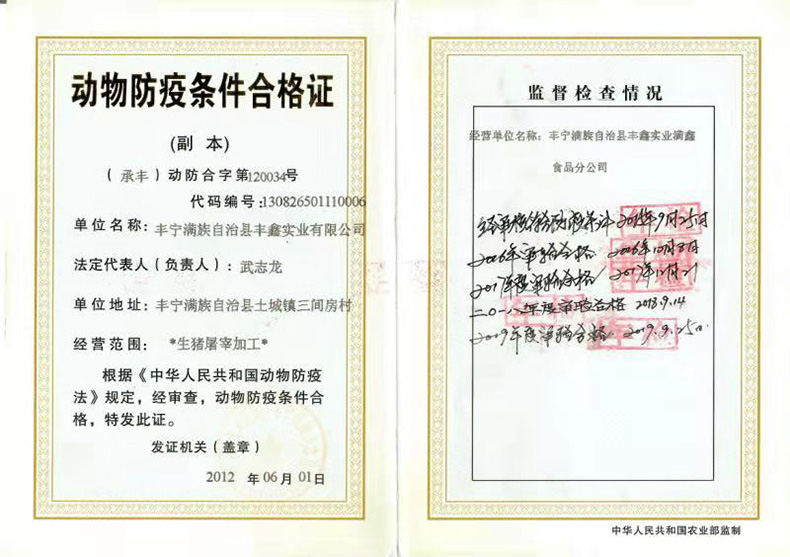 动物防疫条件合格证
(副 本)
(承丰)动防合字第120034号
代码编号:130826501110006
单位名称:丰宁满族自治县丰鑫实业有限公司
法定代表人(负责人):武志龙
单位地址:丰宁满族自治县土城镇三间房村
经营范围:*生猪屠宰加工*
根据《中华人民共和国动物防疫
法》规定,经审查,动物防疫条件合
格,特发此证。
发证机关(盖章)
2012 年 06 月 01 日
监督检查情况
经营单位名称:丰宁满族自治县丰鑫实业满鑫
食品分公司
9月25日
2016年审验合格 2016年10月8日
2017年度审验合格 2017年12月21
二〇一八年度审验合格 2018.9.14
2019年度审验合格 2019.9.25日
中华人民共和国农业部监制